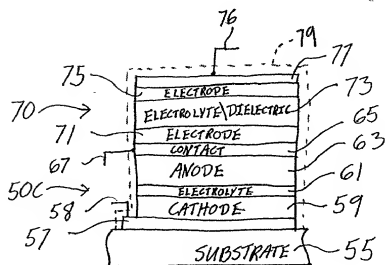 76
79
77
75
ELECTRODE
73
ELECTROLYTE\DIELECTRIC
70
65
71
ELECTRODE
63
67
CONTACT
ANODE
61
50C
ELECTROLYTE
58
CATHODE
59
57
SUBSTRATE
55